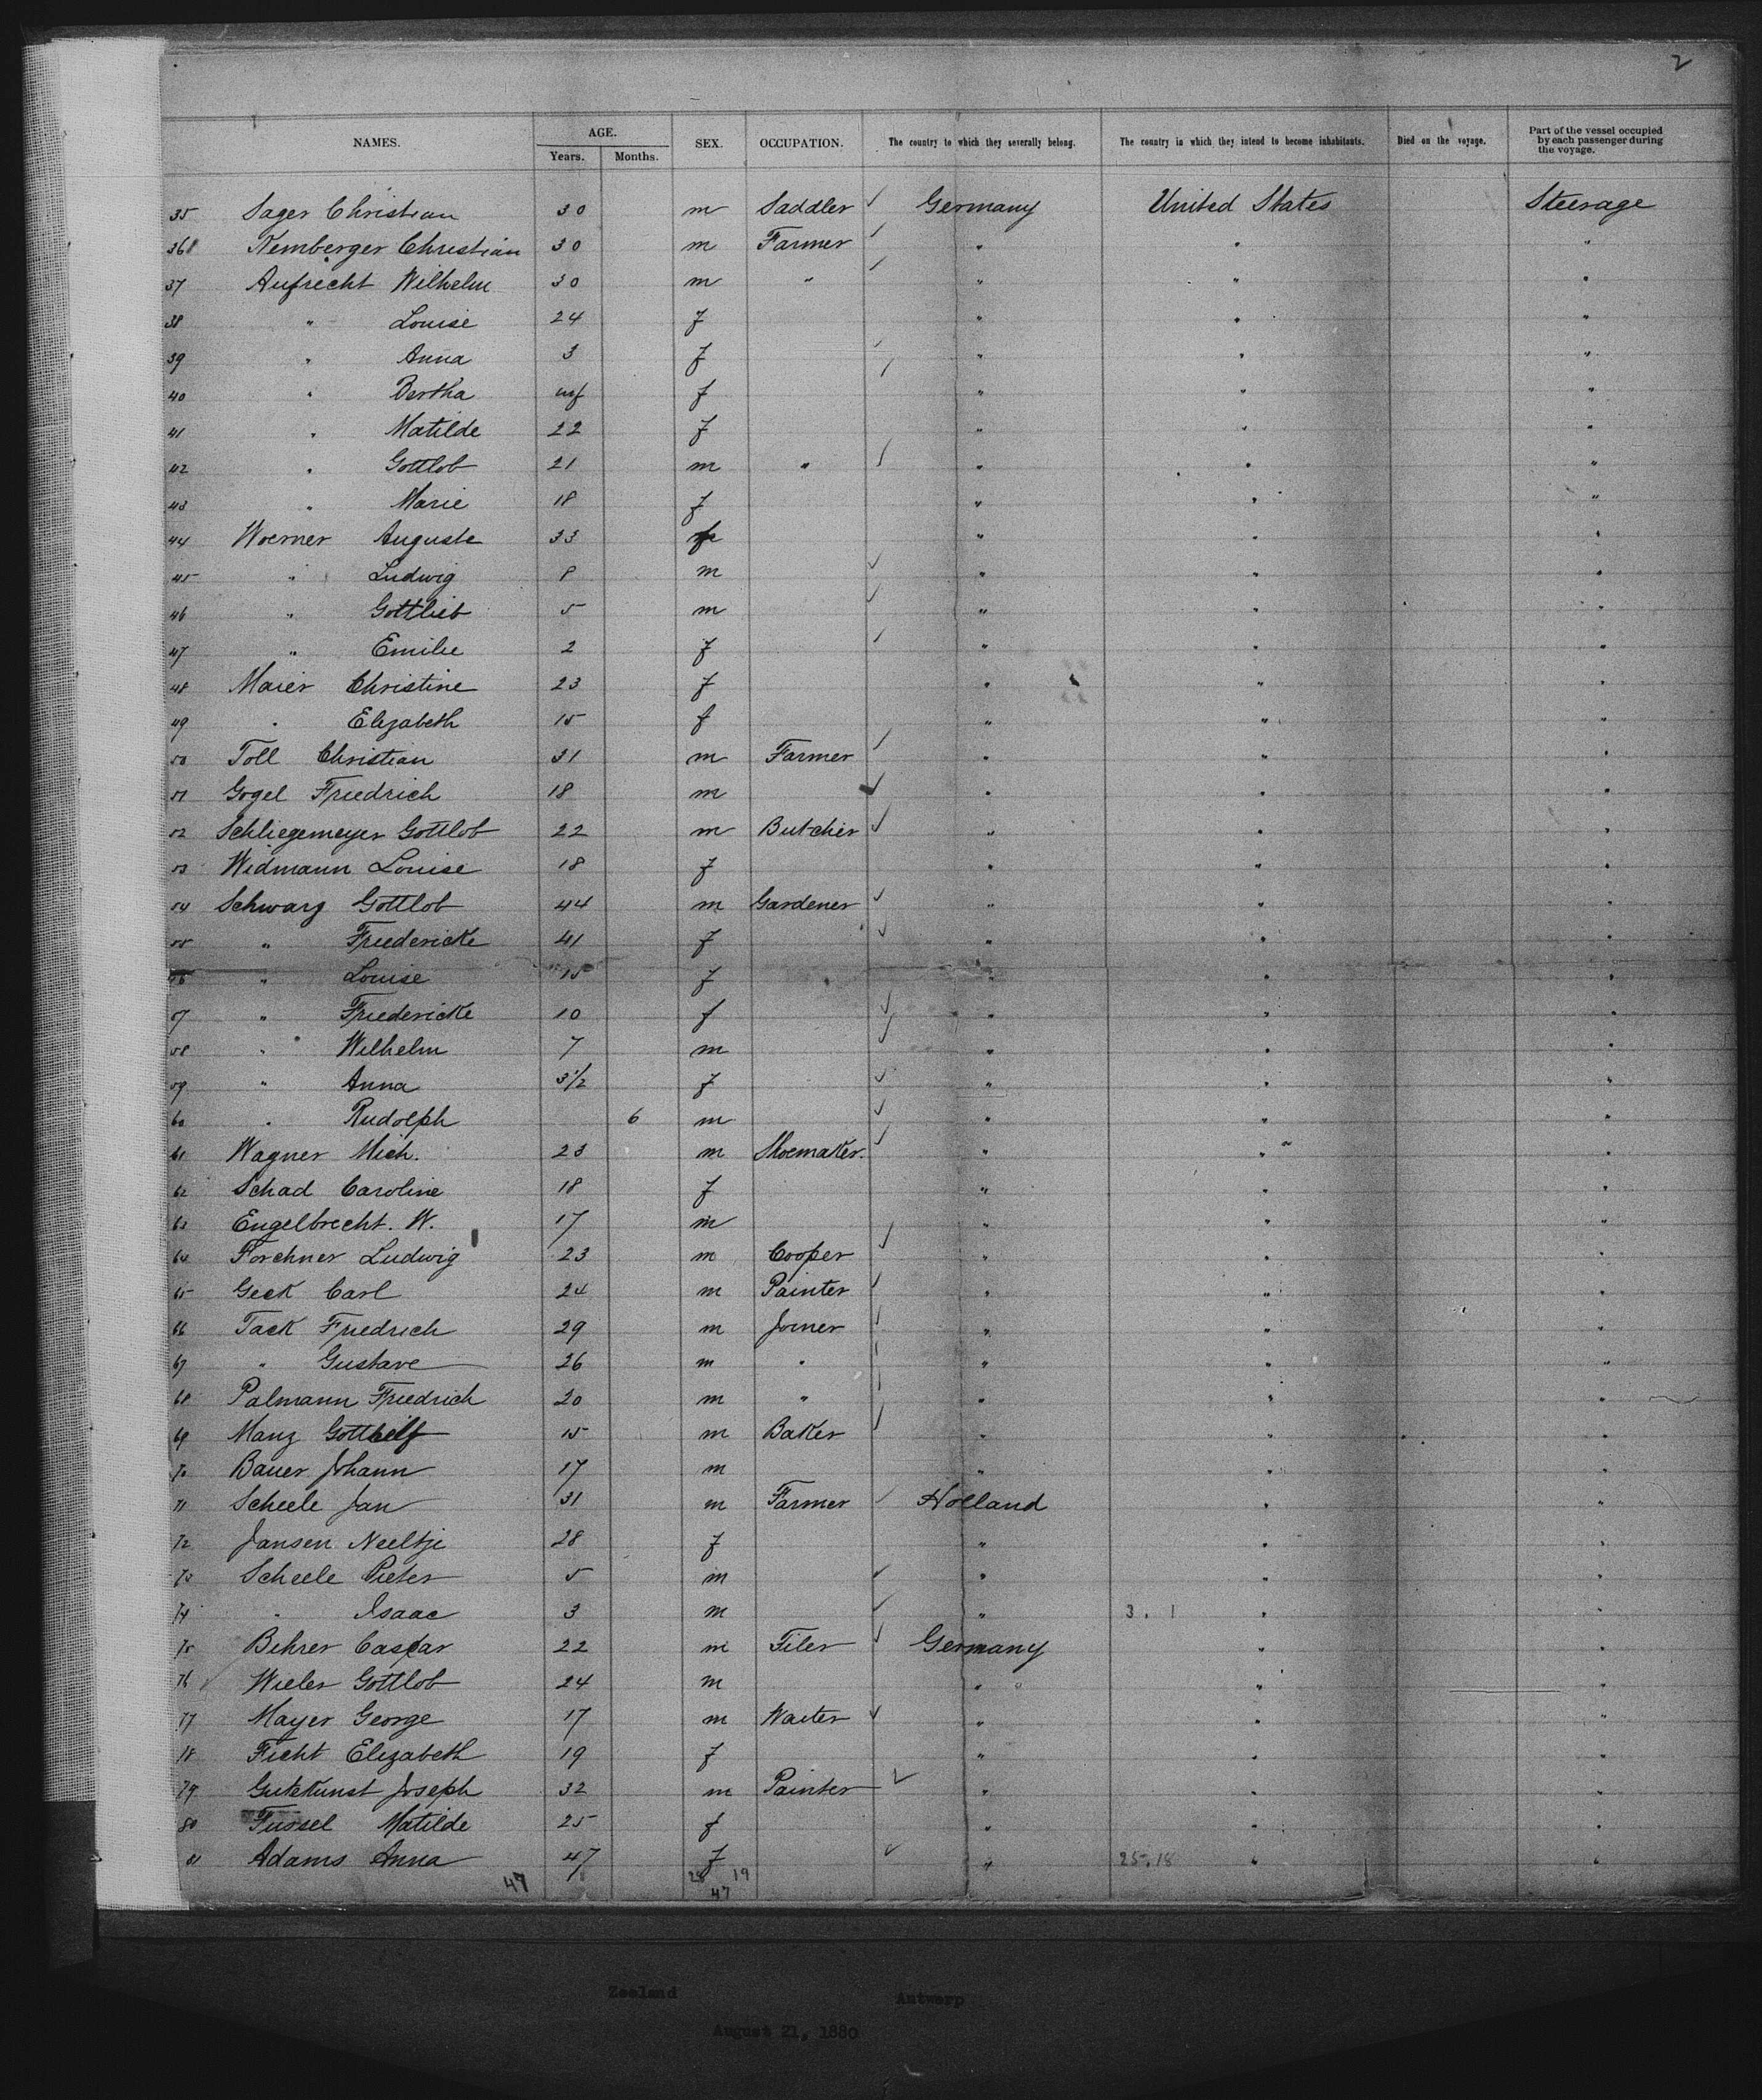 2
NAMES. AGE. SEX. OCCUPATION. The country to which they severally belong. The country in which they intend to become inhabitants. Died on the voyage. Part of the vessel occupied by each passenger during the voyage.
Years. Months.
35 Sager Christian 30 m Saddler ✓ Germany United States Steerage
36 Kemberger Christian 30 m Farmer ✓ " " "
37 Aufrecht Wilhelm 30 m " ✓ " " "
38 " Louise 24 f " " "
39 " Anna 3 f " " "
40 " Bertha inf f " " "
41 " Matilde 22 f " " "
42 " Gottlob 21 m " ✓ " " "
43 " Marie 18 f " " "
44 Woerner Auguste 33 f " " "
45 " Ludwig 8 m ✓ " " "
46 " Gottlieb 5 m ✓ " " "
47 " Emilie 2 f ✓ " " "
48 Maier Christine 23 f " " "
49 " Elizabeth 15 f " " "
50 Toll Christian 31 m Farmer ✓ " " "
51 Gogel Friedrich 18 m ✓ " " "
52 Schliegemeyer Gottlob 22 m Butcher ✓ " " "
53 Widmann Louise 18 f " " "
54 Schwarz Gottlob 44 m Gardener ✓ " " "
55 " Friedericke 41 f ✓ " " "
56 " Louise 15 f " " "
57 " Friedericke 10 f ✓ " " "
58 " Wilhelm 7 m ✓ " " "
59 " Anna 3½ f ✓ " " "
60 " Rudolph 6 m ✓ " " "
61 Wagner Mich. 23 m Shoemaker. ✓ " " "
62 Schad Caroline 18 f " " "
63 Engelbrecht. W. 17 m " " "
64 Forchner Ludwig 23 m Cooper ✓ " " "
65 Geck Carl 24 m Painter ✓ " " "
66 Tack Friedrich 29 m Joiner ✓ " " "
67 " Gustave 26 m " ✓ " " "
68 Palmann Friedrich 20 m " ✓ " " "
69 Manz Gotthilf 15 m Baker ✓ " " "
70 Bauer Johann 17 m " " "
71 Scheele Jan 31 m Farmer ✓ Holland " "
72 Jansen Neeltje 28 f " " "
73 Scheele Pieter 5 m ✓ " " "
74 " Isaac 3 m ✓ " 3. 1 " "
75 Behrer Caspar 22 m Filer ✓ Germany " "
76 Wieler Gottlob 24 m " " "
77 Mayer George 17 m Waiter ✓ " " "
78 Ficht Elizabeth 19 f " " "
79 Gutekunst Joseph 32 m Painter ✓ " " "
80 Fussel Matilde 25 f " " "
81 Adams Anna 47 f ✓ " 25.18 " "
47 28 19
47
Zeeland Antwerp
August 21, 1880